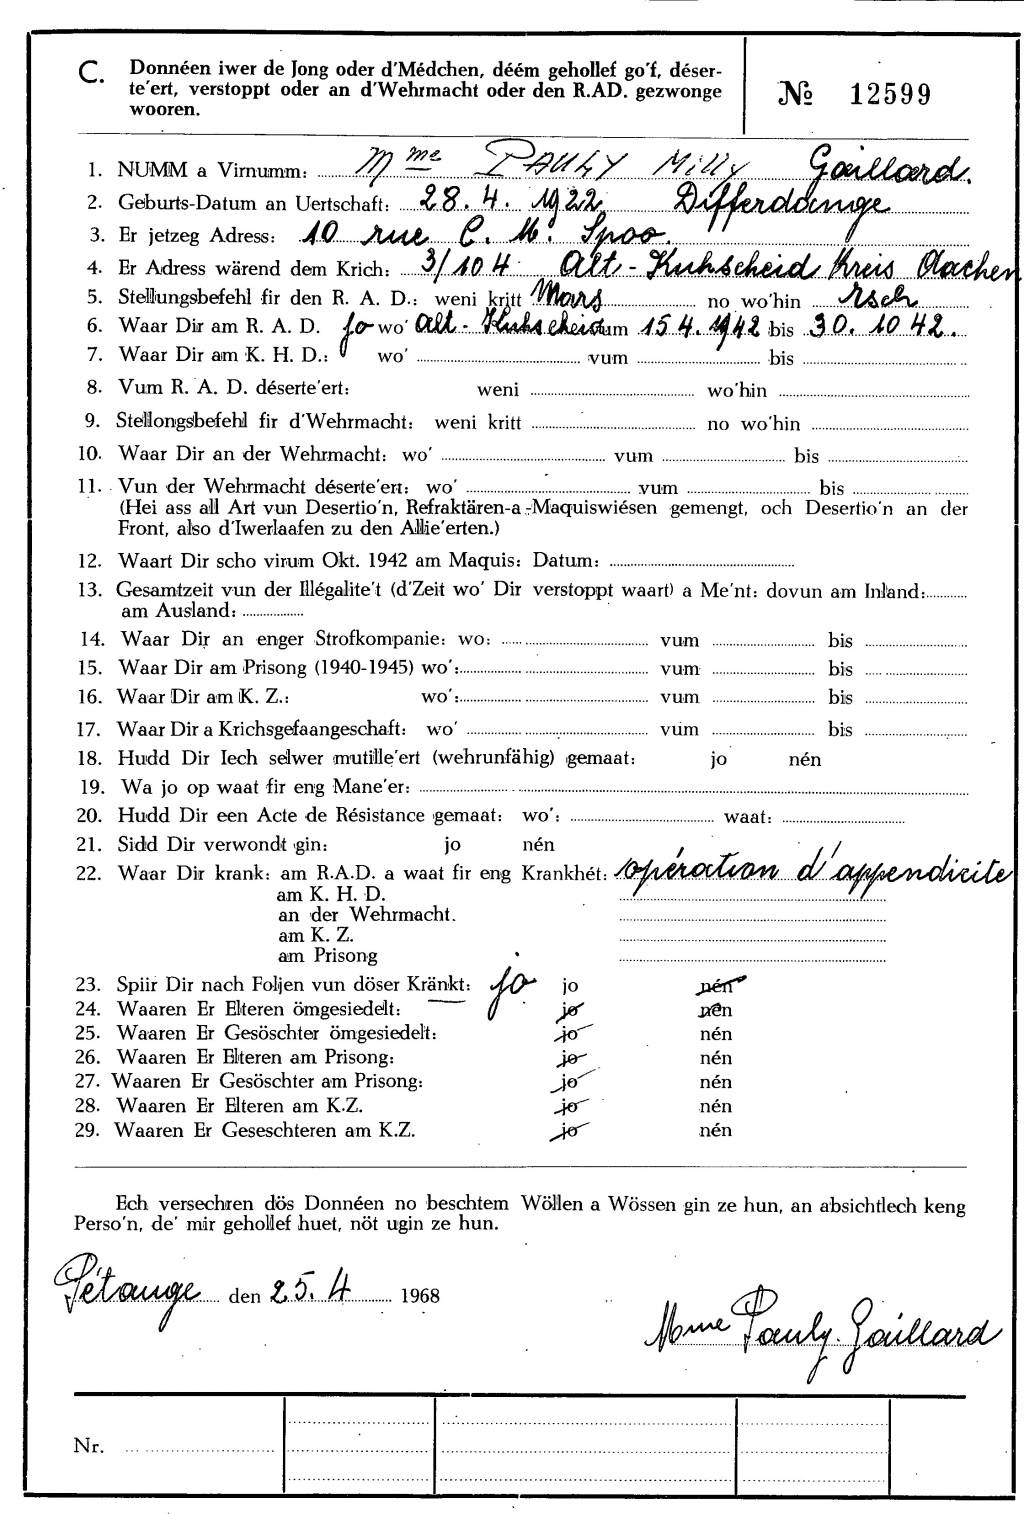 C. Donnéen iwer de Jong oder d'Médchen, déém gehollef go'f, déser-
te'ert, verstoppt oder an d'Wehrmacht oder den R.AD. gezwonge
wooren.
№ 12599
1. NUMM a Virnumm: Mme PAULY Milly Gaillard.
2. Geburts-Datum an Uertschaft: 28.4.1922 Differdange
3. Er jetzeg Adress: 10 rue C. M. Spoo.
4. Er Adress wärend dem Krich: 3/104 Alt-Kuhscheid Kreis Aachen
5. Stellungsbefehl fir den R. A. D.: weni kritt Mars no wo'hin
6. Waar Dir am R. A. D. Jo wo' Alt-Kuhscheid vum 15 4. 1942 bis 30. 10 42.
7. Waar Dir am K. H. D.: wo' vum bis
8. Vum R. A. D. déserte'ert: weni wo'hin
9. Stellongsbefehl fir d'Wehrmacht: weni kritt no wo'hin
10. Waar Dir an der Wehrmacht: wo' vum bis
11. Vun der Wehrmacht déserte'ert: wo' vum bis
(Hei ass all Art vun Desertio'n, Refraktären-a-Maquiswiésen gemengt, och Desertio'n an der
Front, also d'Iwerlaafen zu den Allie'erten.)
12. Waart Dir scho virum Okt. 1942 am Maquis: Datum:
13. Gesamtzeit vun der Illégalite't (d'Zeit wo' Dir verstoppt waart) a Me'nt: dovun am Inland:
am Ausland:
14. Waar Dir an enger Strofkompanie: wo: vum bis
15. Waar Dir am Prisong (1940-1945) wo': vum bis
16. Waar Dir am K. Z.: wo': vum bis
17. Waar Dir a Krichsgefaangeschaft: wo' vum bis
18. Hudd Dir Iech selwer mutille'ert (wehrunfähig) gemaat: jo nén
19. Wa jo op waat fir eng Mane'er:
20. Hudd Dir een Acte de Résistance gemaat: wo': waat:
21. Sidd Dir verwondt gin: jo nén
22. Waar Dir krank: am R.A.D. a waat fir eng Krankhét: opération d'appendicite
am K. H. D.
an der Wehrmacht.
am K. Z.
am Prisong
23. Spiir Dir nach Foljen vun döser Kränkt: jo jo nén
24. Waaren Er Elteren ömgesiedelt: jo nén
25. Waaren Er Gesöschter ömgesiedelt: jo nén
26. Waaren Er Elteren am Prisong: jo nén
27. Waaren Er Gesöschter am Prisong: jo nén
28. Waaren Er Elteren am K.Z. jo nén
29. Waaren Er Geseschteren am K.Z. jo nén
Ech versechren dös Donnéen no beschtem Wöllen a Wössen gin ze hun, an absichtlech keng
Perso'n, de' mir gehollef huet, nöt ugin ze hun.
Pétange den 25. 4 1968
Mme Pauly-Gaillard
Nr.